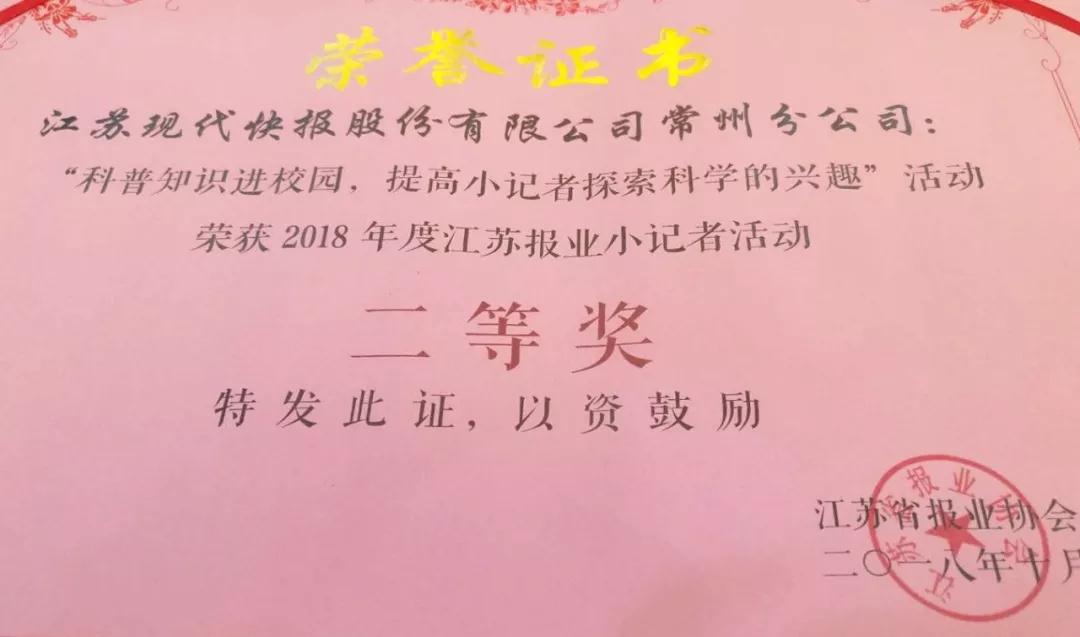 荣誉证书
江苏现代快报股份有限公司常州分公司：
“科普知识进校园，提高小记者探索科学的兴趣”活动
荣获 2018 年度江苏报业小记者活动
二等奖
特发此证，以资鼓励
江苏省报业协会
二〇一八年十月
江苏省报业协会